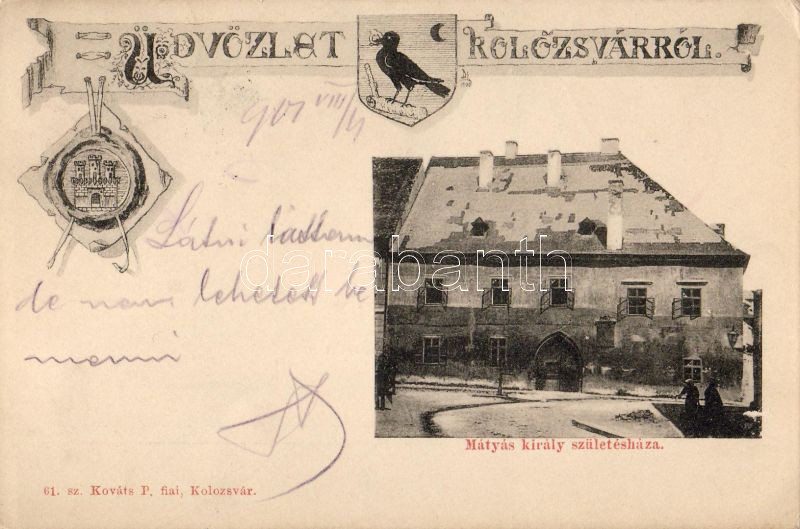 ÜDVÖZLET KOLOZSVÁRRÓL.
901 VIII/11
Látni láttam
de nem lehetett be
menni
darabanth
Mátyás király születésháza.
61. sz. Kováts P. fiai, Kolozsvár.